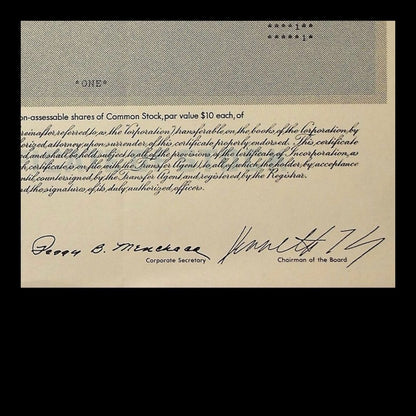 ****1**
*****1*
*ONE*
on-assessable shares of Common Stock, par value $10 each, of
reinafter referred to as the "Corporation") transferable on the books of the Corporation by
horized attorney upon surrender of this certificate properly endorsed. This certificate
ed, and shall be held, subject to all of the provisions of the Certificate of Incorporation, as
h certificate is on file with the Transfer Agent), to all of which the holder, by acceptance
until countersigned by the Transfer Agent and registered by the Registrar.
nd the signatures of its duly authorized officers.
Peggy B. Menchaca
Kenneth
Corporate Secretary
Chairman of the Board